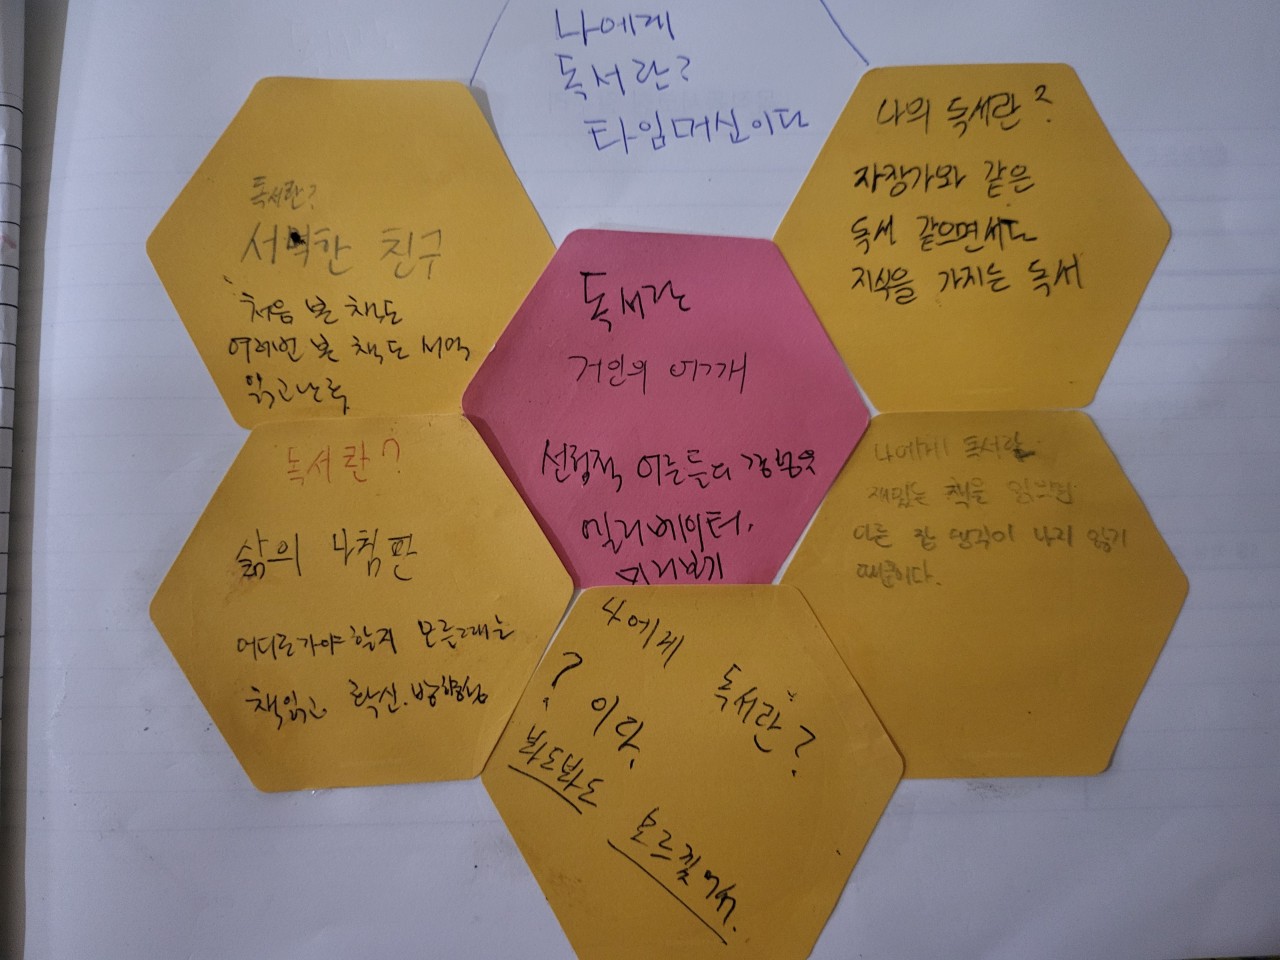 나에게
독서란?
타임머신이다
독서란?
서먹한 친구
처음 본 책도
여러번 본 책도 서먹
읽고난 후
나의 독서란?
자장가와 같은
독서 같으면서도
지식을 가지는 독서
독서란
거인의 어깨
어른들의
엘리베이터.
미리보기
독서란?
삶의 나침판
어디로가야 할지 모를때는
책읽고 확신.방향성
나에게 독서란
재밌는 책을 읽으면
다른 잡 생각이 나지 않기
때문이다.
나에게
독서란?
? 이다.
봐도봐도
모르겠어서.